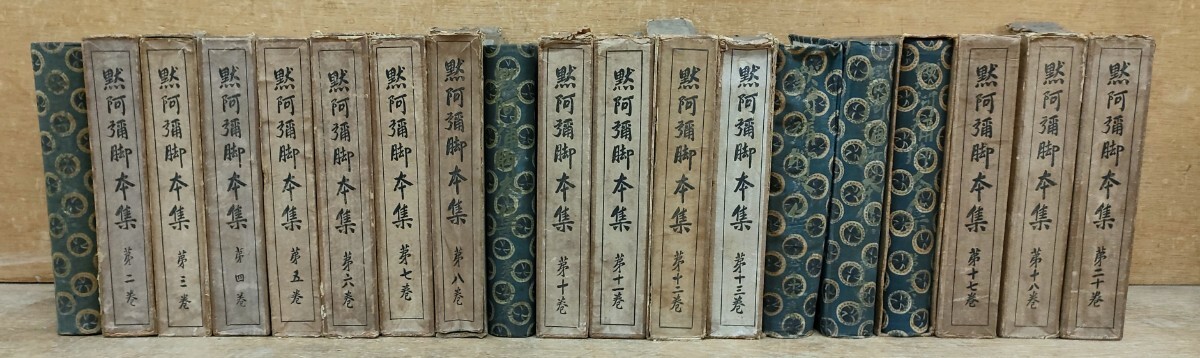 黙阿彌脚本集 第二巻
黙阿彌脚本集 第三巻
黙阿彌脚本集 第四巻
黙阿彌脚本集 第五巻
黙阿彌脚本集 第六巻
黙阿彌脚本集 第七巻
黙阿彌脚本集 第八巻
黙阿彌脚本集 第十巻
黙阿彌脚本集 第十一巻
黙阿彌脚本集 第十二巻
黙阿彌脚本集 第十三巻
黙阿彌脚本集 第十七巻
黙阿彌脚本集 第十八巻
黙阿彌脚本集 第二十巻